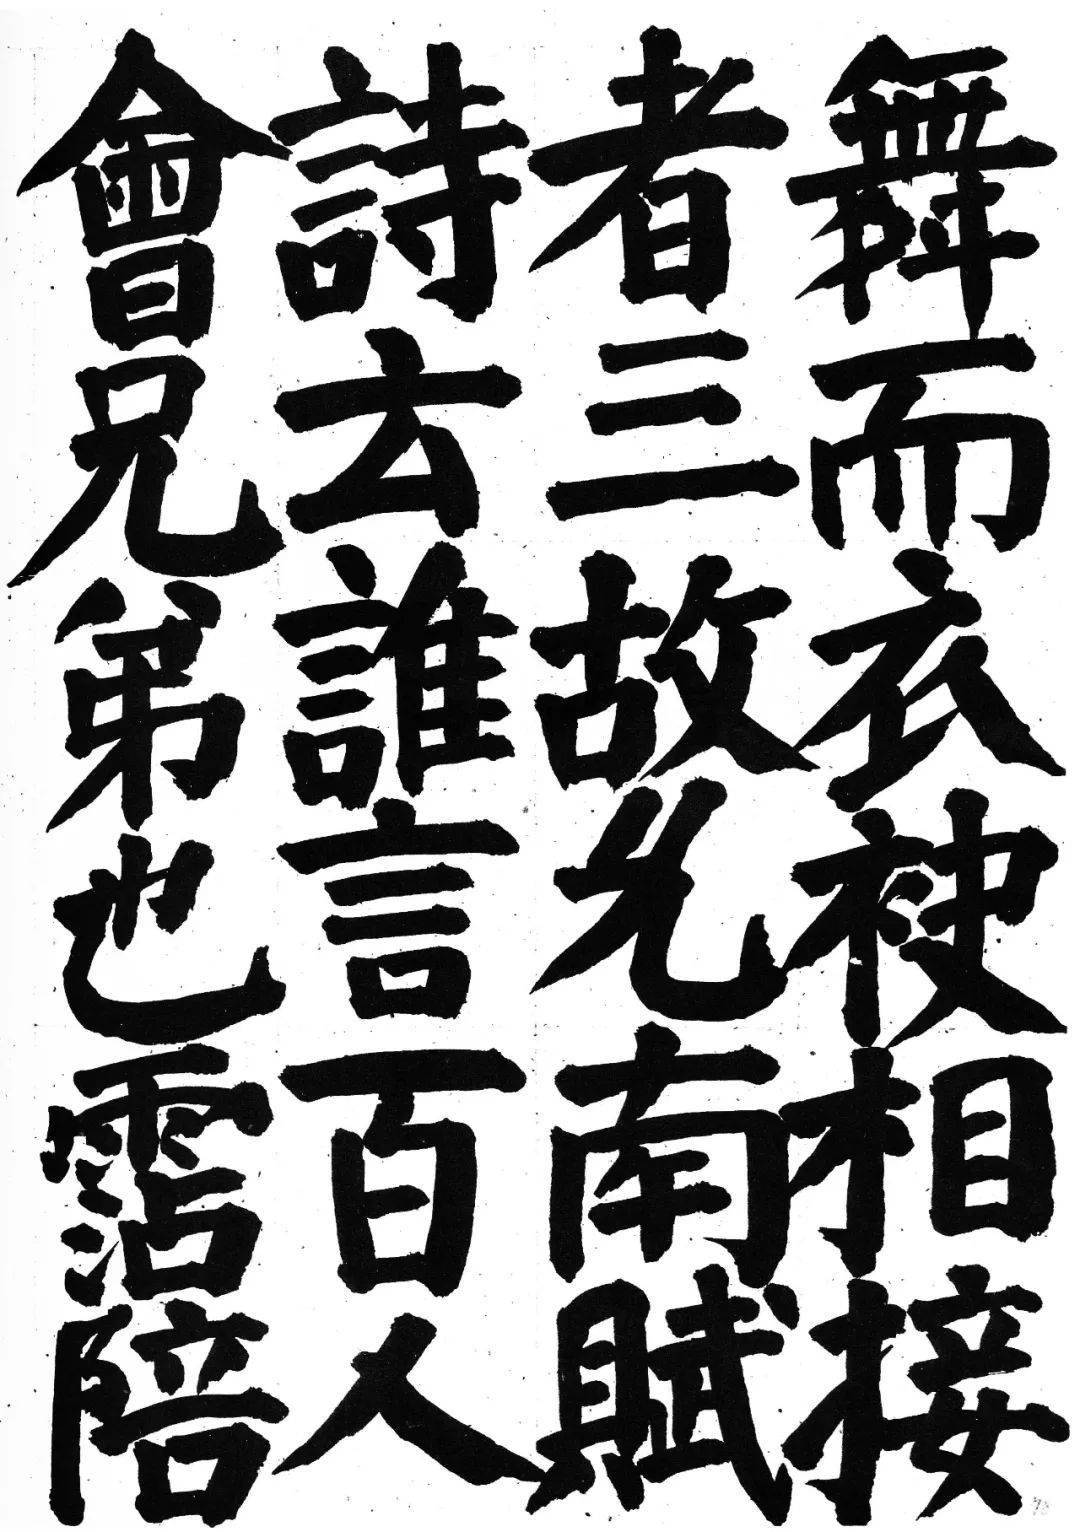 舞而衣袂相接
者三故允南賦
詩云誰言百人
會兄弟也霑陪